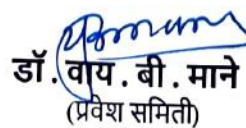 डॉ. वाय. बी. माने
(प्रवेश समिती)